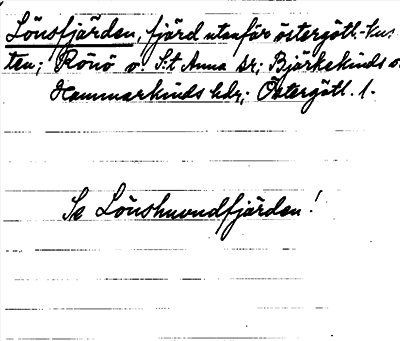 Lönsfjärden, fjärd utanför östergötl.-kus
ten; Rönö o. S:t Anna sr; Björkekinds o.
Hammarkinds hdr; Östergötl. l.
Se Lönshuvudfjärden!